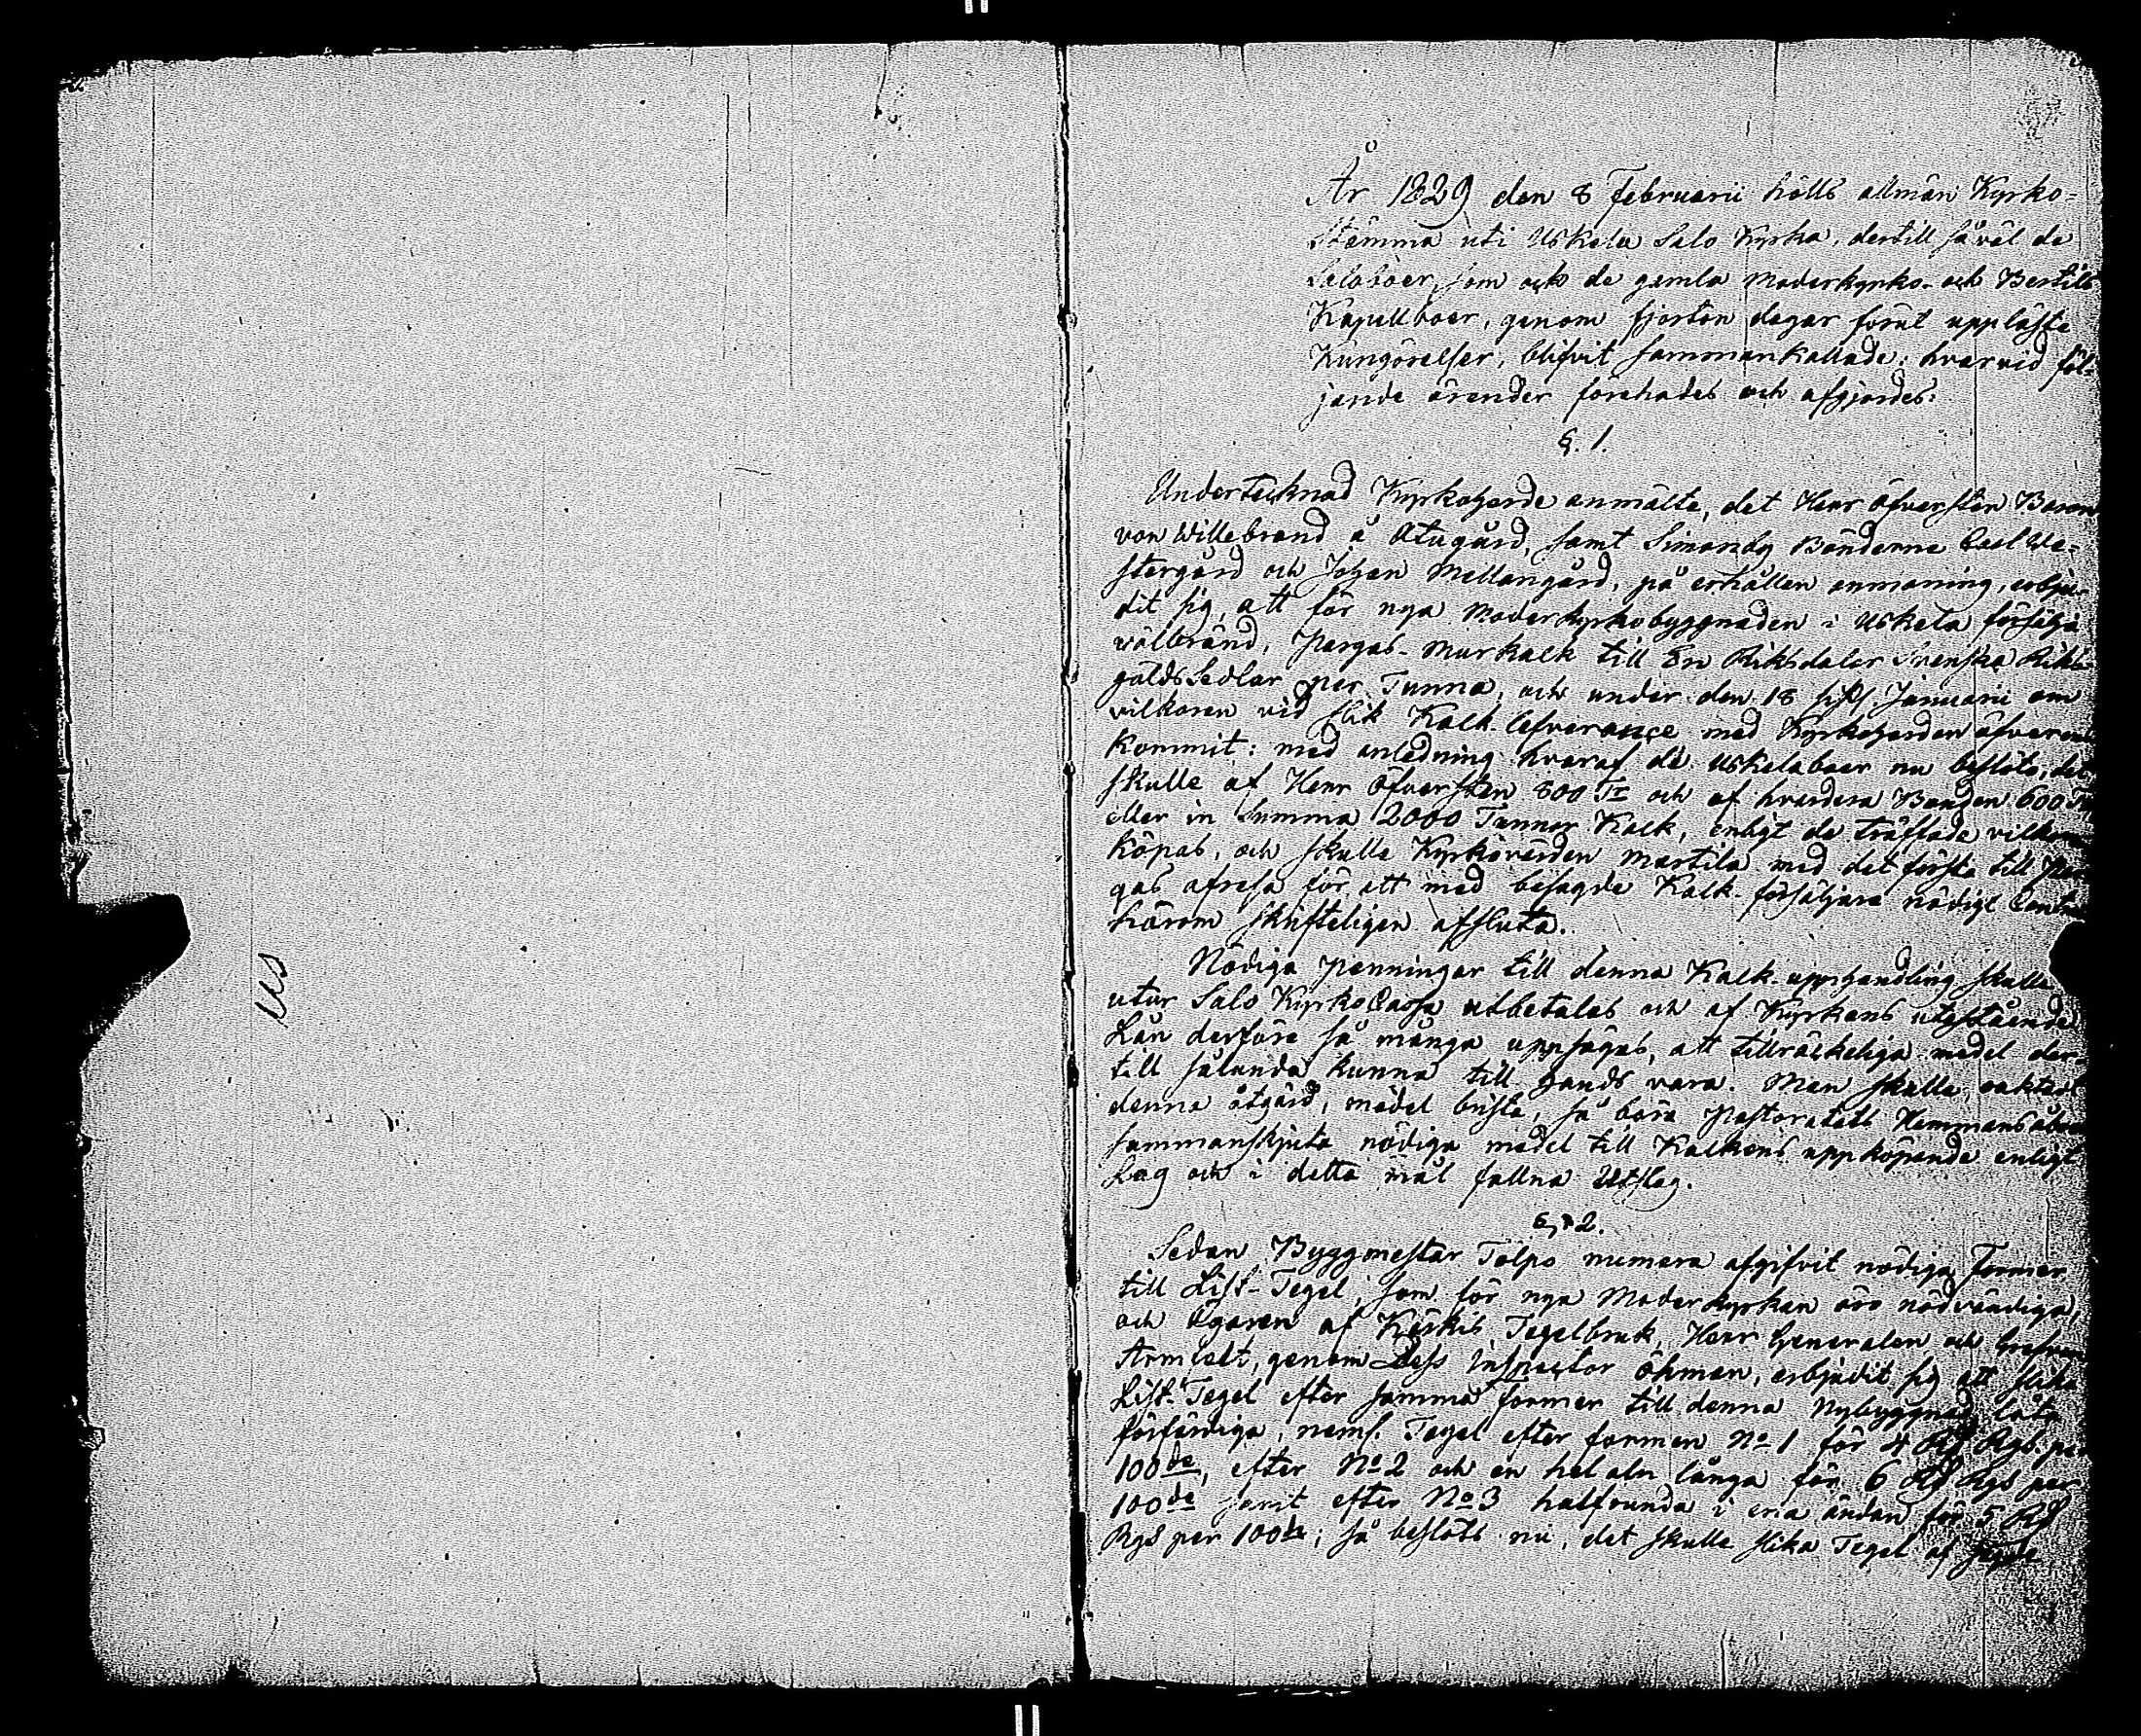 År 1829 den 8 Februarii hölls allmän Kyrko-
Stämma uti Uskela Salo Kyrka, dertill så väl de
Saloboer, som ock de gamla Moderkyrko- och Bertils
Kapellboer, genom fjorton dagar förut uppläste
Kungörelser, blifvit sammankallade; hvarvid föl-
jande ärender förehades och afgjordes:
§. 1.
Undertecknad Kyrkoherde anmälte, det Herr Öfversten Baron
von Willebrand å Attugård, samt Simonby Bönderne Carl We-
stergård och Johan Mellangård, på erhållen anmaning, erbju-
dit sig, att för nya Moderkyrkobyggnaden i Uskela försälja
wälbränd, Pargas-Murkalk till En Riksdaler Svenska Riks-
gäldsSedlar per Tunna, och under den 18 sistl. Januarii om
vilkoren vid slik Kalk-lefverançe med Kyrkoherden öfverens
kommit: med anledning hvaraf de Uskelaboer nu beslöto, det
skulle af Herr Öfversten 800 Tr och af hvardera Bonden 600 Tr
eller in Summa 2000 Tunnor Kalk, enligt de träffade vilkor
köpas, och skulle Kyrkovärden Martila med det första till Par-
gas afresa för att med besagde Kalk-försäljare nödigt Contr
härom skrifteligen afsluta.
Nödiga penningar till denna Kalk-upphandling skulle
utur Salo KyrkoCassa utbetalas och af Kyrkans utestående
Lån derföre så många uppsägas, att tillräckeliga medel der-
till sålunda kunna till hands vara. Men skulle, oaktadt
denna åtgärd, medel brista, så böra Pastoratets Hemmansåboer
sammanskjuta nödiga medel till Kalkens uppköpande enligt
Lag och i detta mål fallna Utslag.
§. 2.
Sedan Byggmestar Tolpo numera afgifvit nödiga Former
till List-Tegel, som för nya Moderkyrkan äro nödvändiga,
och Ägaren af Kärkis Tegelbruk, Herr Generalen och Grefven
Armfelt, genom Dess Inspector Öhman, erbjudit sig att slika
List-Tegel efter samma former till denna Nybyggnad låta
förfärdiga, neml. Tegel efter formen No 1 för 4 Rd Rgs per
100de, efter No 2 och en hel aln långa för 6 Rd Rgs per
100de samt efter No 3 halfrunda i ena ändan för 5 Rd
Rgs per 100de; så beslöts nu, det skulle slika Tegel af
Us